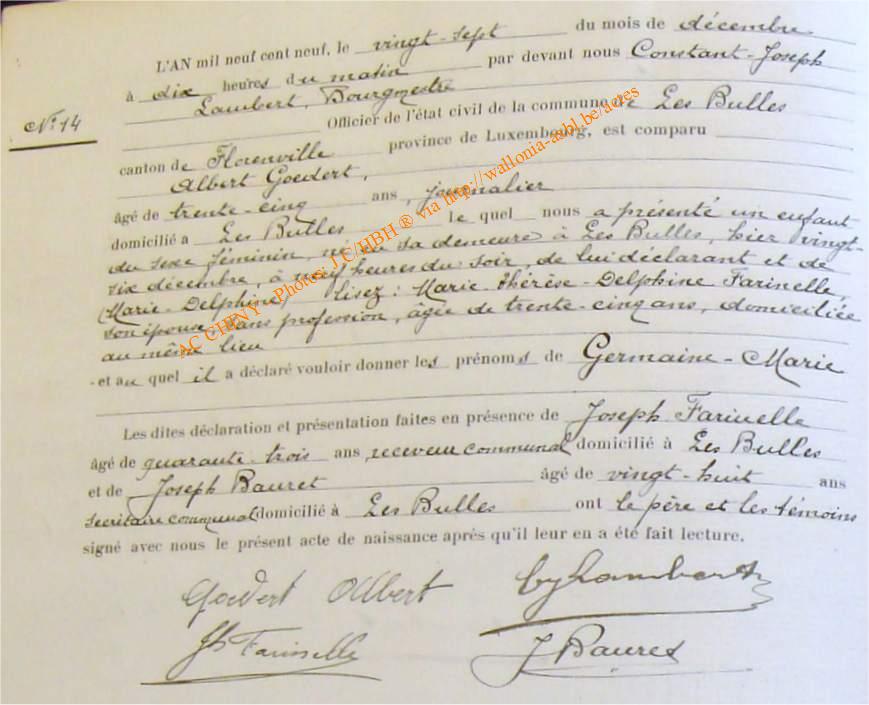 L'AN mil neuf cent neuf, le vingt-sept du mois de décembre
à dix heures du matin par devant nous Constant-Joseph
Lambert, Bourgmestre
N° 14
Officier de l'état civil de la commune de Les Bulles
canton de Florenville province de Luxembourg, est comparu
Albert Goedert,
âgé de trente-cinq ans, journalier
domicilié à Les Bulles le quel nous a présenté un enfant
du sexe féminin, né en sa demeure à Les Bulles, hier vingt-
six décembre, à neuf heures du soir, de lui déclarant et de
(Marie-Delphine, lisez: Marie-Thérèse-Delphine Farinelle,
son épouse, sans profession, âgée de trente-cinq ans, domiciliée
au même lieu
et au quel il a déclaré vouloir donner les prénoms de Germaine-Marie
Les dites déclaration et présentation faites en présence de Joseph Farinelle
âgé de quarante-trois ans, receveur communal domicilié à Les Bulles
et de Joseph Bauret âgé de vingt-huit ans
secrétaire communal domicilié à Les Bulles ont le père et les témoins
signé avec nous le présent acte de naissance après qu'il leur en a été fait lecture.
Goedert Albert CjLambert
Jh Farinelle J Bauret
AC CHINY - Photos J C/HBH ® via http://wallonia-asbl.be/actes